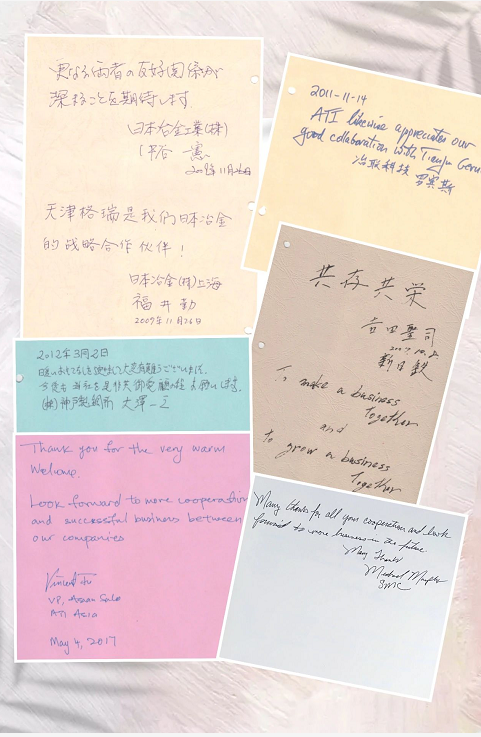 更なる両者の友好関係が
深まること期待します
日本冶金工業(株)
谷 憲
2009年11月26日
天津格瑞是我們日本冶金
的战略合作伙伴！
日本冶金(株)上海
福井勤
2009年11月26日
2011-11-14
ATI likewise appreciates our
good collaboration with Tianjin Geru
冶联科技
共存共栄
吉田聖司
新日鉄
To make a business
together
and
to grow a business
together
2012年3月2日
(株)神戸製鋼所 大澤
Thank you for the very warm
Welcome.
Look forward to more cooperation
and successful business between
our companies
Vincent
VP, Asian Sales
ATI Asia
May 4, 2017
Many thanks for all your cooperation and look
forward to more business in the future
Many Thanks
Michael
SMC